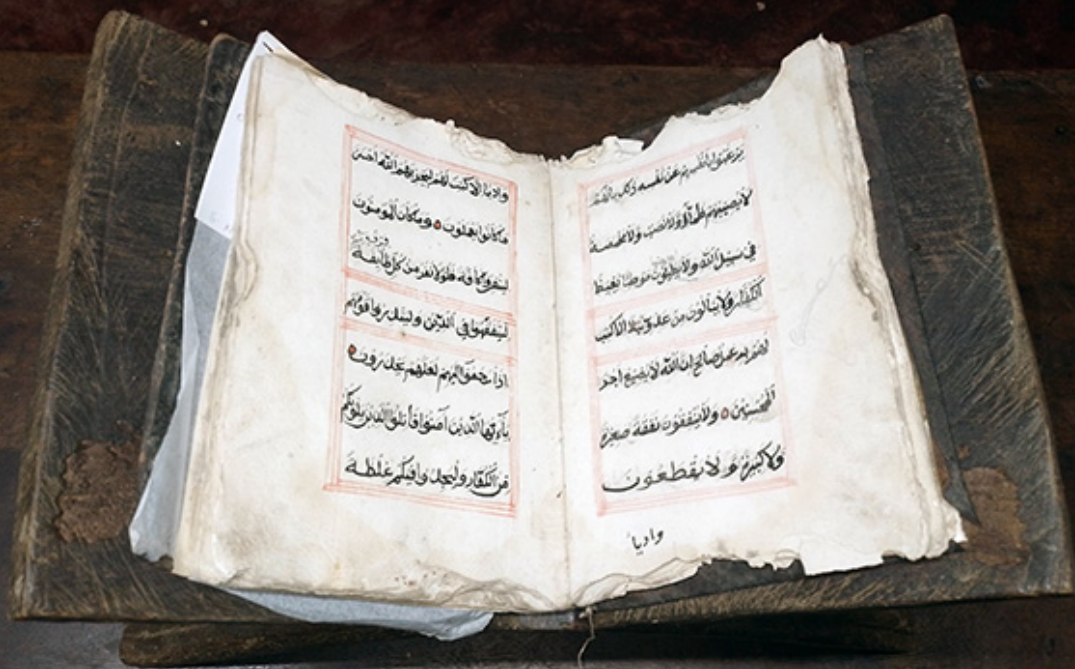 يرغبوا بانفسهم عن نفسه ذلك بانهم
لا يصيبهم ظمأ ولا نصب ولا مخمصة
في سبيل الله ولا يطؤن موطئا يغيظ
الكفار ولا ينالون من عدو نيلا الا كتب
لهم به عمل صالح ان الله لا يضيع اجر
المحسنين ولا ينفقون نفقة صغيرة
ولا كبيرة ولا يقطعون
واديا
واديا الا كتب لهم ليجزيهم الله احسن
ما كانوا يعملون وما كان المومنون
فرقة
لينفروا كافة فلولا نفر من كل طايفة
ليتفقهوا في الدين ولينذروا قومهم
اذا رجعوا اليهم لعلهم يحذرون
يأيها الذين آمنوا قاتلوا الذين يلونكم
من الكفار وليجدوا فيكم غلظة